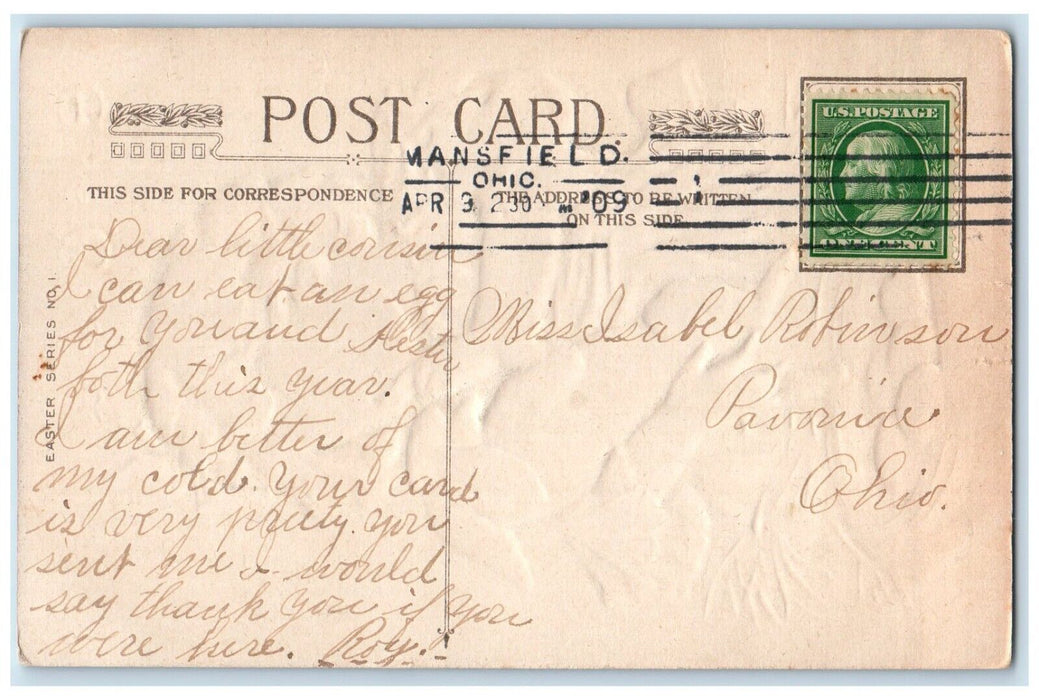 POST CARD.
MANSFIELD.
OHIO.
APR 9 230 '09
THIS SIDE FOR CORRESPONDENCE
THE ADDRESS TO BE WRITTEN
ON THIS SIDE
U.S. POSTAGE
EASTER SERIES NO. 1
Dear little cousin
I can eat an egg
for you and Hester
both this year.
I am better of
my cold. Your card
is very pretty you
sent me & I would
say thank you if you
were here. Roy.
Miss Isabel Robinson
Pavonia
Ohio.